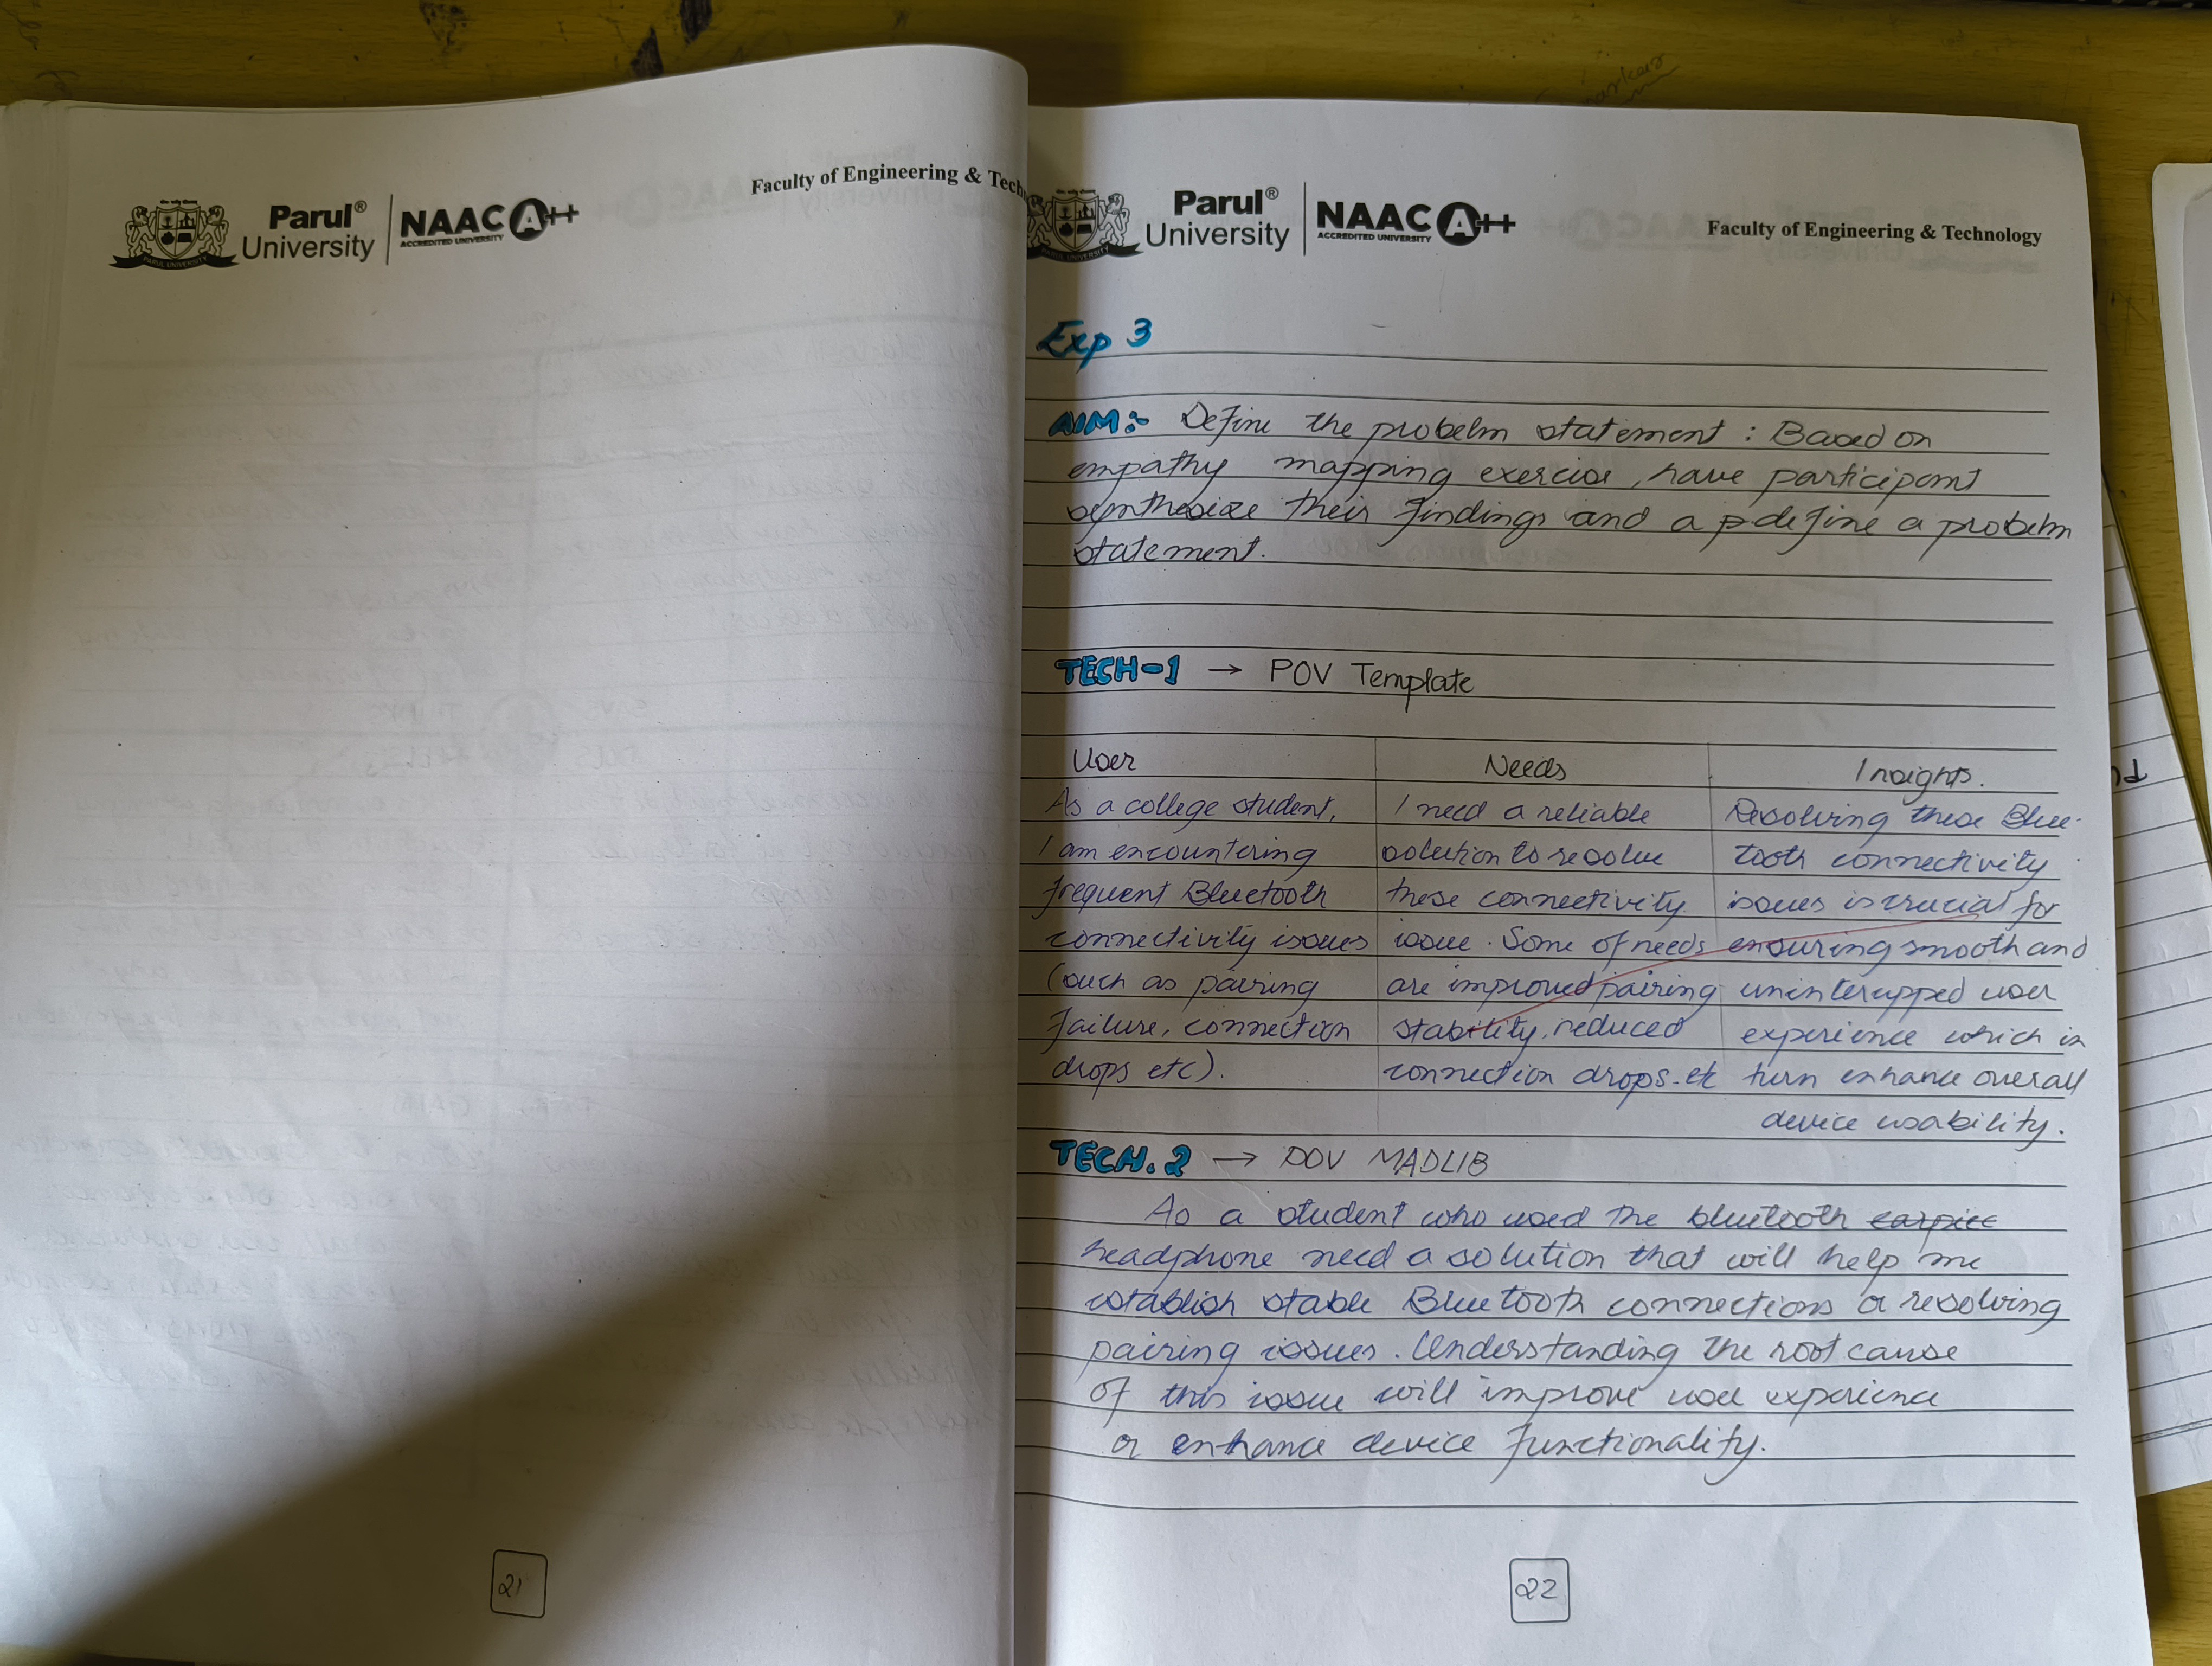 Parul® University
NAAC A++
ACCREDITED UNIVERSITY
PARUL UNIVERSITY
Faculty of Engineering & Tech
21
Parul® University
NAAC A++
ACCREDITED UNIVERSITY
Faculty of Engineering & Technology
Exp 3
AIM:- Define the probelm statement : Based on
empathy mapping exercise, have participant
synthesize their findings and a p define a probelm
statement.
TECH-1 → POV Template
User
As a college student,
I am encountering
frequent Bluetooth
connectivity issues
(such as pairing
failure, connection
drops etc).
Needs
I need a reliable
solution to resolve
these connectivity
issue. Some of needs
are improved pairing
stability, reduced
connection drops. etc
Insights.
Resolving these Blue-
tooth connectivity
issues is crucial for
ensuring smooth and
uninterupped user
experience which in
turn enhance overall
device usability.
TECH.2 → POV MADLIB
As a student who used the bluetooth earpiece
headphone need a solution that will help me
establish stable Bluetooth connections or resolving
pairing issues. Understanding the root cause
of this issue will improve user experience
or enhance device functionality.
22